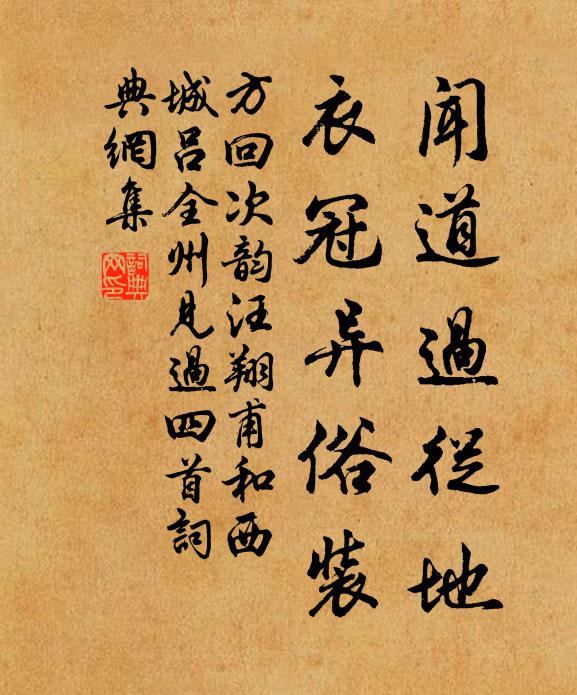 聞道過從地
衣冠异俗装
方回次韵汪翔甫和西
城吕全州見過四首詞
典網集
詞典
网印